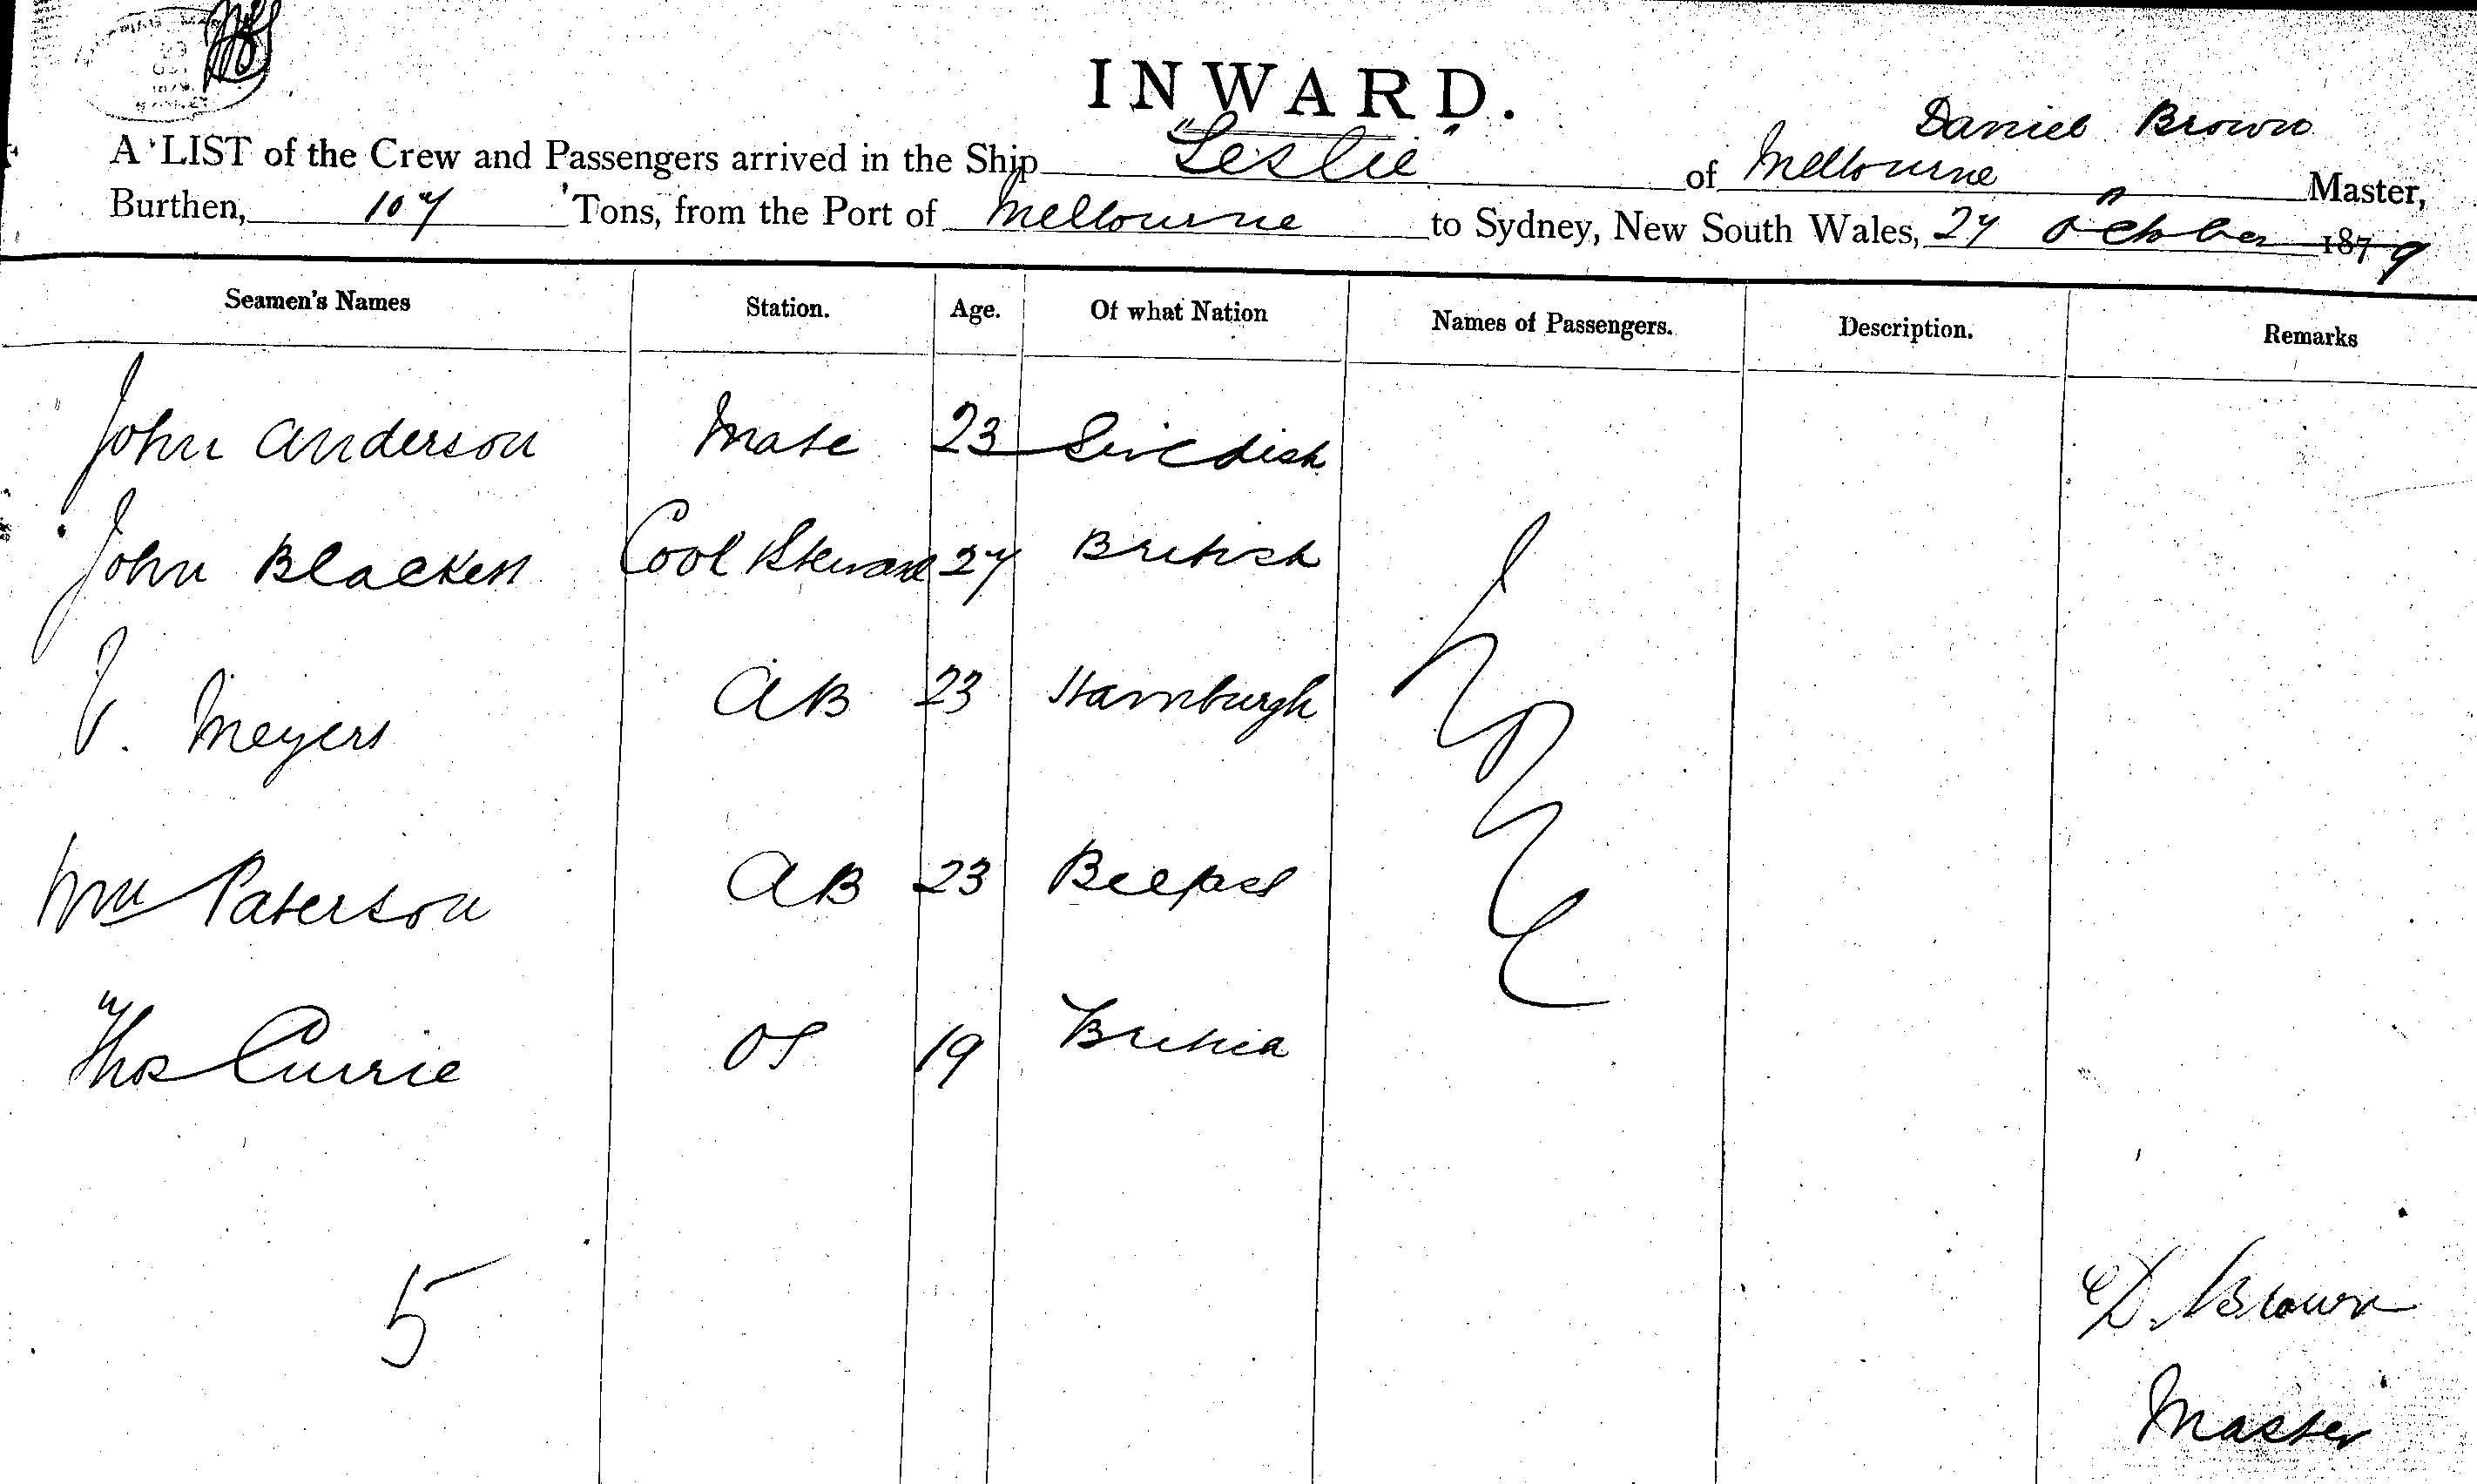 INWARD.
Daniel Brown
A LIST of the Crew and Passengers arrived in the Ship "Leslie" of Melbourne Master,
Burthen, 107 Tons, from the Port of Melbourne to Sydney, New South Wales, 27 October 1879
Seamen's Names Station. Age. Of what Nation Names of Passengers. Description. Remarks
John Anderson Mate 23 Swedish
John Blacken Cook Steward 27 British
Meyers AB 23 Hamburgh
Wm Paterson AB 23 Belfast
Thos Currie OS 19 British
5
D. Brown
Master